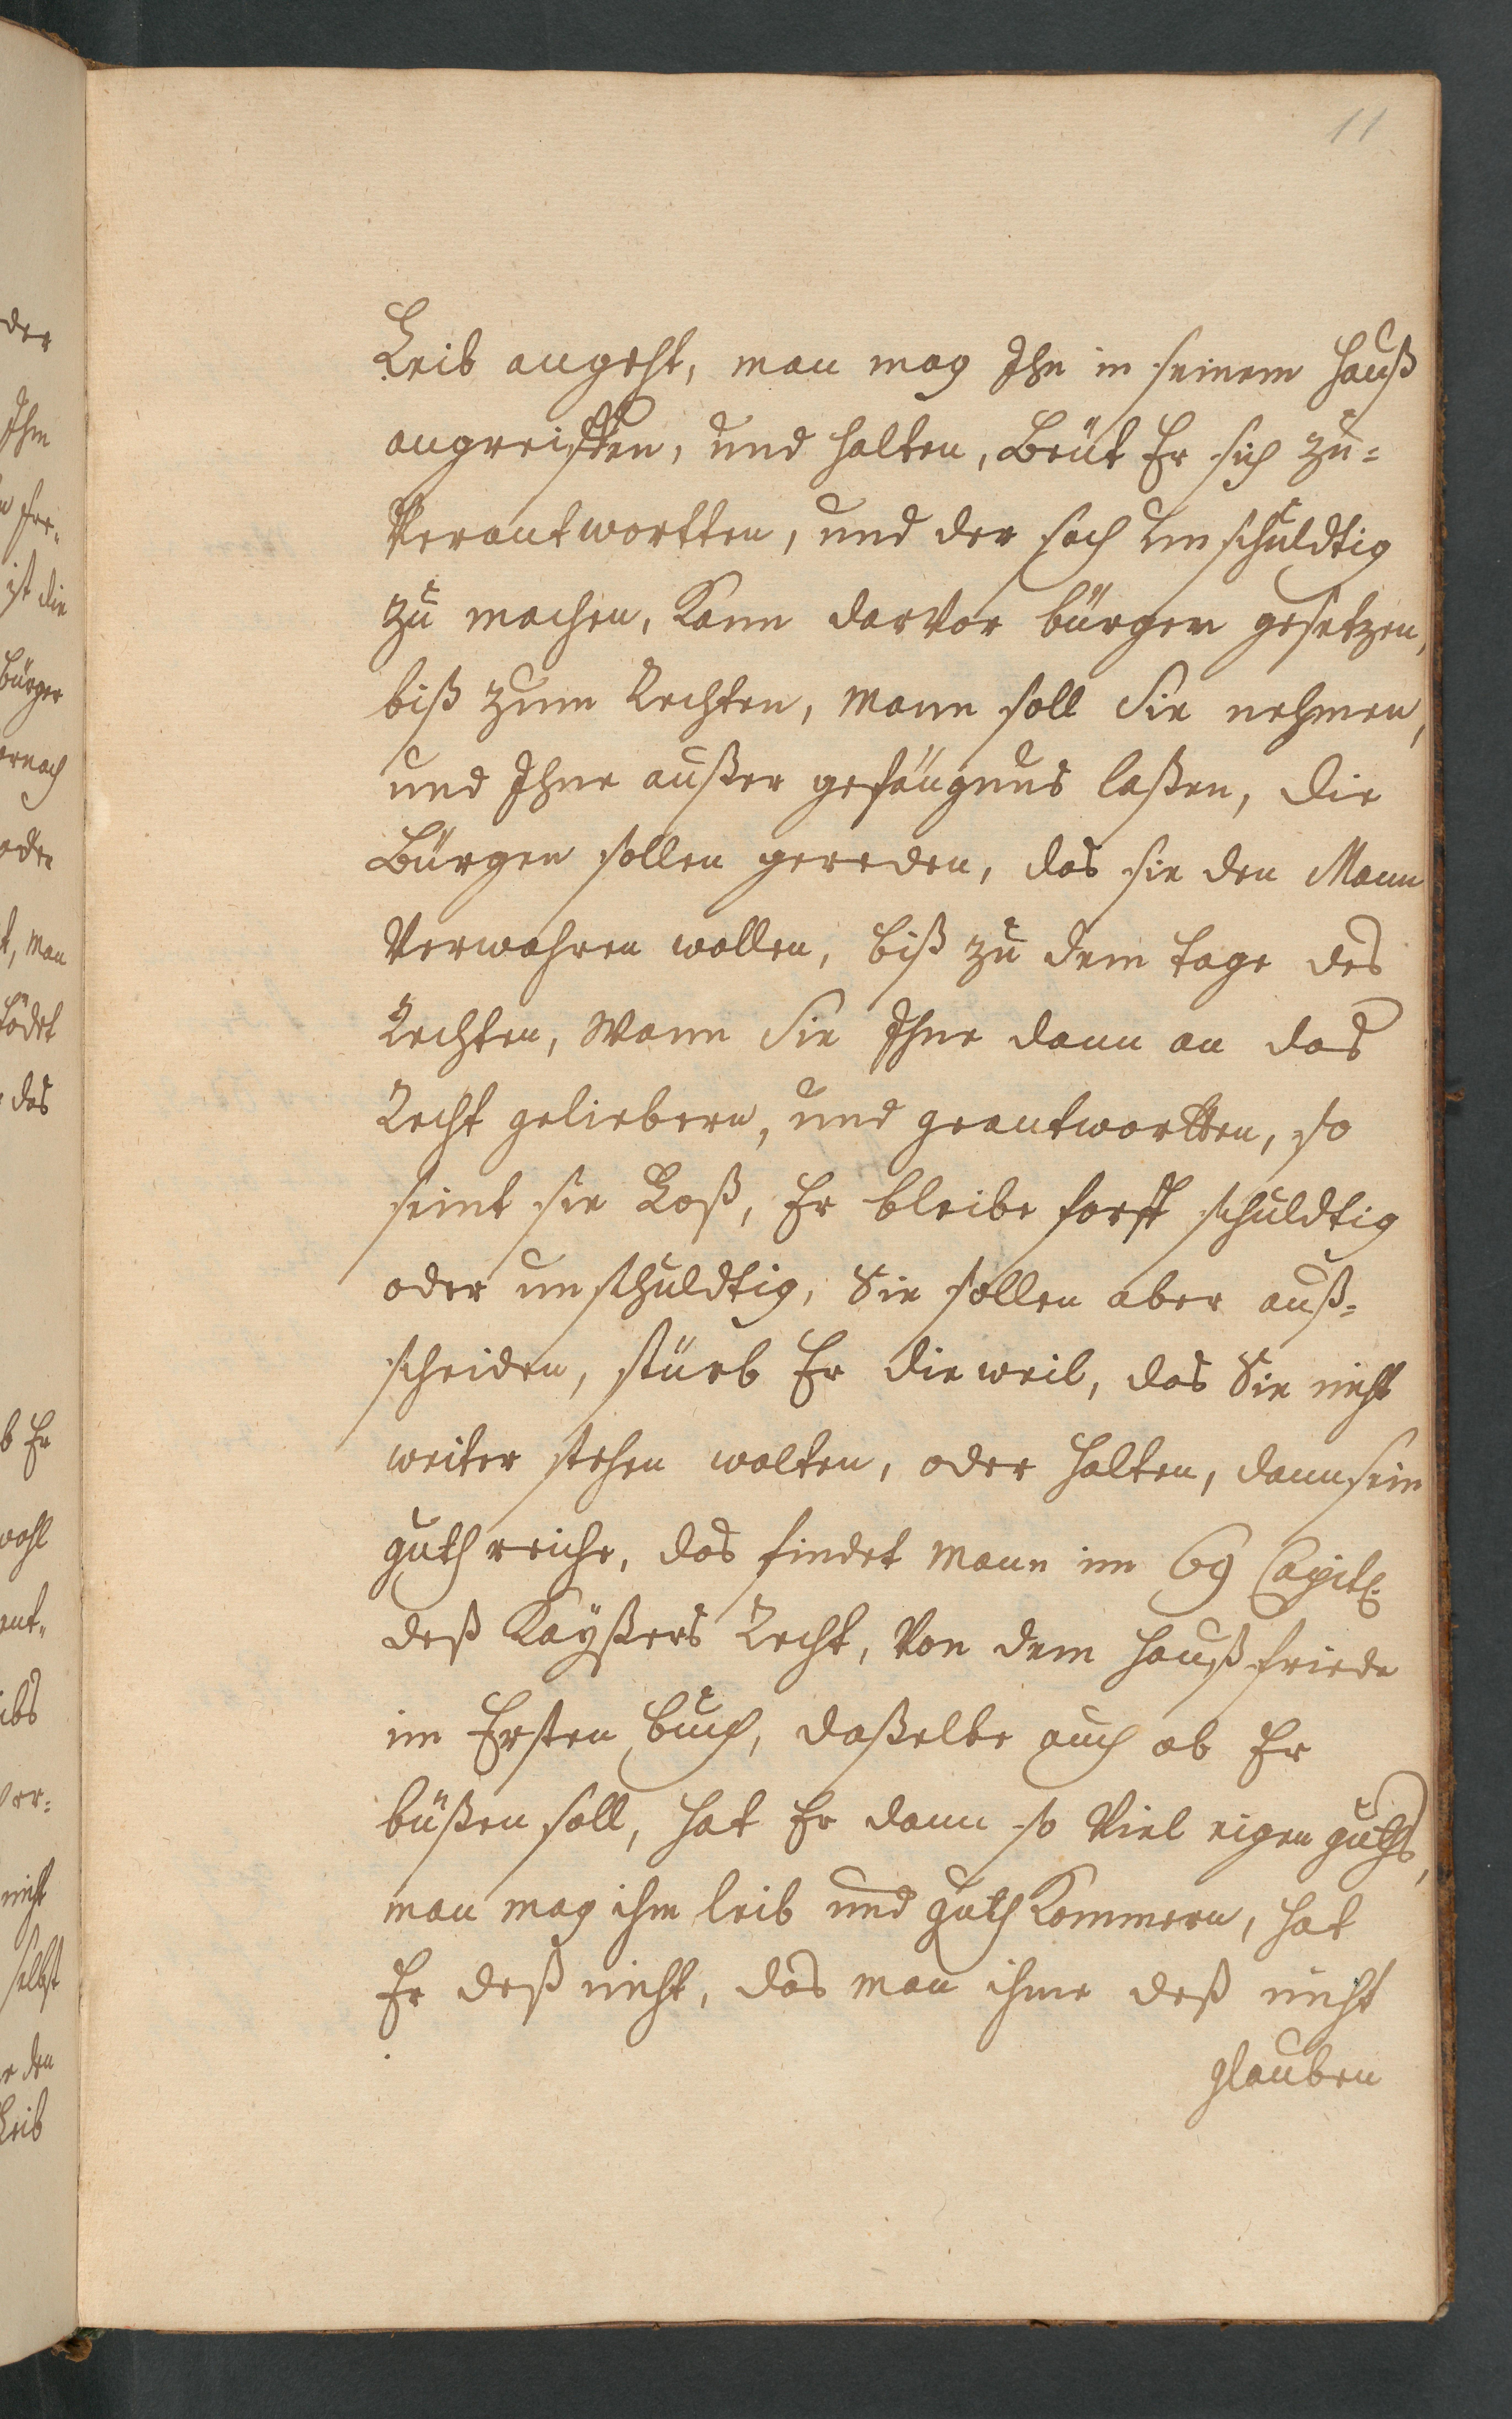 11
Leib angeht, man mag Ihn in seinem Hauß
angreiffen, und halten, Beüt Er sich zu=
Verantwortten, und der sach unschuldtig
zu machen, Kann darvor bürgen gesetzen,
biß zum Rechten, Mann soll Sie nehmen,
und Ihne außer gefängnus laßen, die
Bürgen sollen gereden, das sie den Mann
Verwahren wollen, biß zu dem tage des
Rechten, Wann Sie Ihne dann an das
Recht geliebern, und geantwortten, so
seint sie Loß, Er bleibe forth schuldtig
oder unschuldtig, Sie sollen aber auß=
scheiden, stürb Er die weil, das Sie nicht
weiter stehen wolten, oder halten, dann sein
guth reiche, das findet Mann im 69 Capitl.
deß Kayßers Recht, Von dem Hauß friede
im Ersten buch, daßelbe auch ob Er
büßen soll, hat Er dann so Viel eigen guths,
man mag ihm leib und guth Kommern, hat
Er deß nicht, das man ihme deß nicht
glauben
der
Ihm
ist die
Bürger
ernach
oder
t, Man
tödet
das
b Er
wohl
ant=
ibs
Ver=
nicht
selbst
e den
Leib